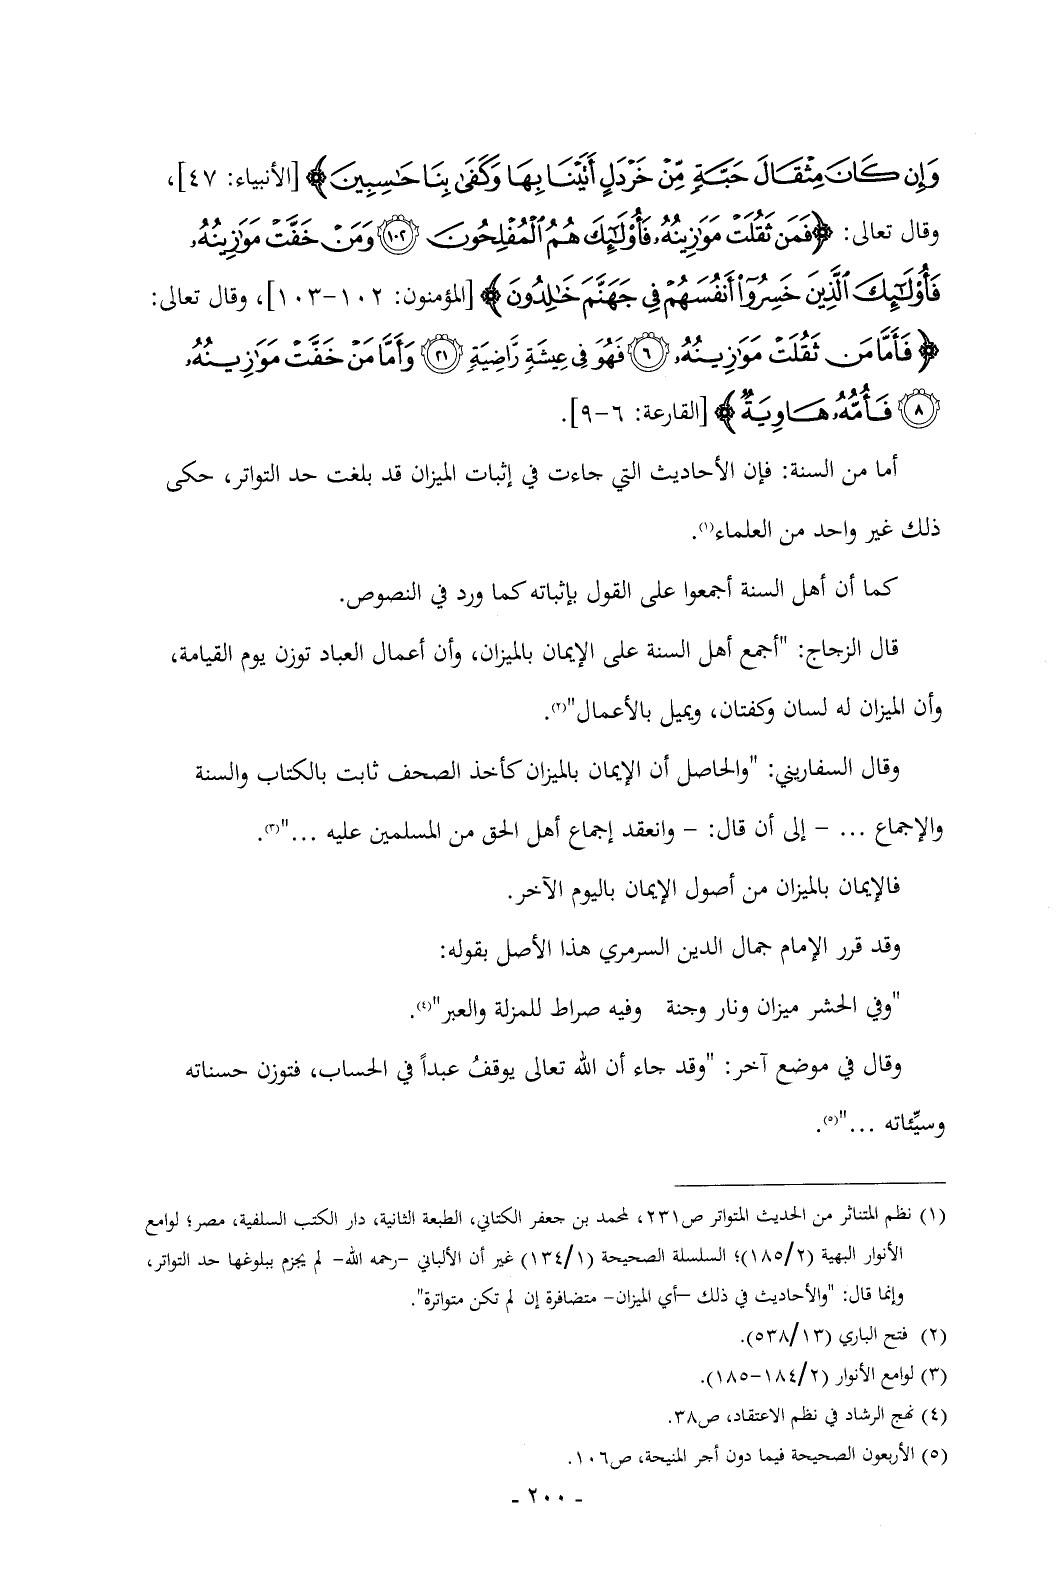 وَإِن كَانَ مِثْقَالَ حَبَّةٍ مِّنْ خَرْدَلٍ أَتَيْنَا بِهَا وَكَفَىٰ بِنَا حَاسِبِينَ ﴾ [الأنبياء: ٤٧]،
وقال تعالى: ﴿ فَمَن ثَقُلَتْ مَوَٰزِينُهُۥ فَأُوْلَٰٓئِكَ هُمُ ٱلْمُفْلِحُونَ ١٠٢ وَمَنْ خَفَّتْ مَوَٰزِينُهُۥ
فَأُوْلَٰٓئِكَ ٱلَّذِينَ خَسِرُوٓاْ أَنفُسَهُمْ فِي جَهَنَّمَ خَٰلِدُونَ ﴾ [المؤمنون: ١٠٢-١٠٣]، وقال تعالى:
﴿ فَأَمَّا مَن ثَقُلَتْ مَوَٰزِينُهُۥ ٦ فَهُوَ فِي عِيشَةٍ رَّاضِيَةٍ ٢١ وَأَمَّا مَنْ خَفَّتْ مَوَٰزِينُهُۥ
٨ فَأُمُّهُۥ هَاوِيَةٌ ﴾ [القارعة: ٦-٩].
أما من السنة: فإن الأحاديث التي جاءت في إثبات الميزان قد بلغت حد التواتر، حكى
ذلك غير واحد من العلماء(١).
كما أن أهل السنة أجمعوا على القول بإثباته كما ورد في النصوص.
قال الزجاج: "أجمع أهل السنة على الإيمان بالميزان، وأن أعمال العباد توزن يوم القيامة،
وأن الميزان له لسان وكفتان، ويميل بالأعمال"(٢).
وقال السفاريني: "والحاصل أن الإيمان بالميزان كأخذ الصحف ثابت بالكتاب والسنة
والإجماع ... - إلى أن قال: - وانعقد إجماع أهل الحق من المسلمين عليه ..."(٣).
فالإيمان بالميزان من أصول الإيمان باليوم الآخر.
وقد قرر الإمام جمال الدين السرمري هذا الأصل بقوله:
"وفي الحشر ميزان ونار وجنة   وفيه صراط للمزلة والعبر"(٤).
وقال في موضع آخر: "وقد جاء أن الله تعالى يوقفُ عبداً في الحساب، فتوزن حسناته
وسيِّئاته ..."(٥).
(١) نظم المتناثر من الحديث المتواتر ص٢٣١، لمحمد بن جعفر الكتاني، الطبعة الثانية، دار الكتب السلفية، مصر؛ لوامع
الأنوار البهية (١٨٥/٢)؛ السلسلة الصحيحة (١٣٤/١) غير أن الألباني -رحمه الله- لم يجزم ببلوغها حد التواتر،
وإنما قال: "والأحاديث في ذلك -أي الميزان- متضافرة إن لم تكن متواترة".
(٢) فتح الباري (٥٣٨/١٣).
(٣) لوامع الأنوار (١٨٤/٢-١٨٥).
(٤) نهج الرشاد في نظم الاعتقاد، ص٣٨.
(٥) الأربعون الصحيحة فيما دون أجر المنيحة، ص١٠٦.
- ٢٠٠ -